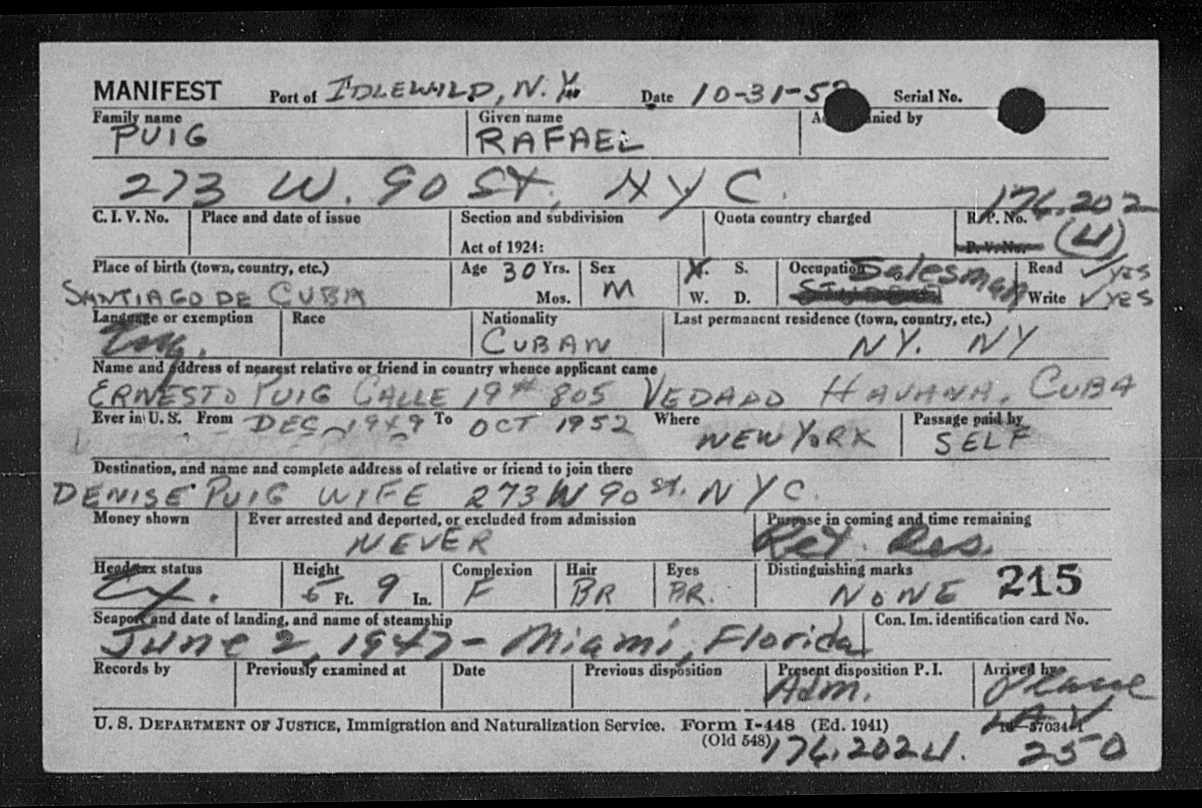 MANIFEST Port of IDLEWILD, N.Y. Date 10-31-52 Serial No.
Family name Given name nied by
PUIG RAFAEL
273 W. 90 ST. NYC.
176.202
C. I. V. No. Place and date of issue Section and subdivision Quota country charged R.P. No.
Act of 1924: P. V. No. (4)
Place of birth (town, country, etc.) Age 30 Yrs. Sex M. S. Occupation Salesman Read ✓ YES
SANTIAGO DE CUBA Mos. M W. D. Write ✓ YES
Language or exemption Race Nationality Last permanent residence (town, country, etc.)
Eng. CUBAN NY. NY
Name and address of nearest relative or friend in country whence applicant came
ERNESTO PUIG CALLE 19 # 805 VEDADO HAVANA, CUBA
Ever in U. S. From DEC 1949 To OCT 1952 Where NEW YORK Passage paid by SELF
Destination, and name and complete address of relative or friend to join there
DENISE PUIG WIFE 273 W 90 ST. NYC.
Money shown Ever arrested and deported, or excluded from admission Purpose in coming and time remaining
NEVER Ret. Res.
Head tax status Height Complexion Hair Eyes Distinguishing marks 215
Ex. 5 Ft. 9 In. F BR BR. NONE
Seaport and date of landing, and name of steamship Con. Im. identification card No.
June 2, 1947 - Miami, Florida
Records by Previously examined at Date Previous disposition Present disposition P. I. Arrived by
Adm. Plane
U. S. DEPARTMENT OF JUSTICE, Immigration and Naturalization Service. Form I-448 (Ed. 1941) LAV
(Old 548) 176,2024. 250